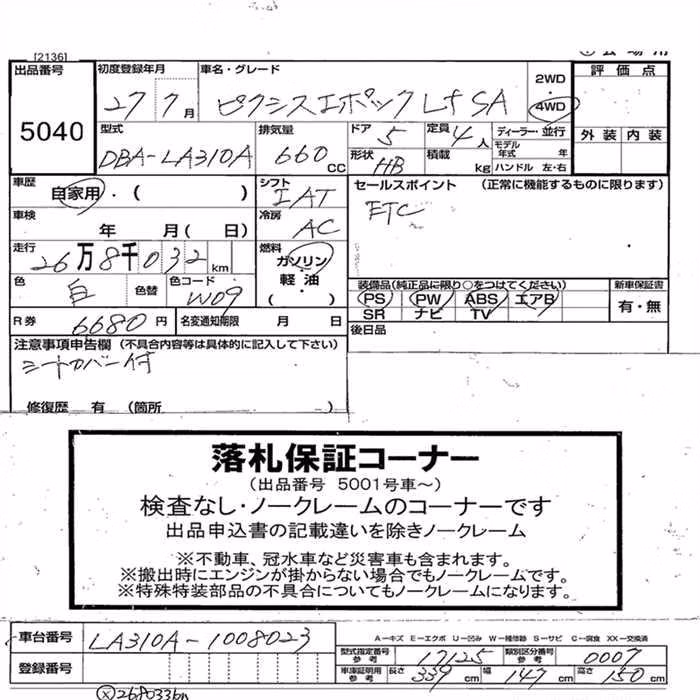 [2136]
出品番号 5040
初度登録年月 27 7月
車名・グレード ピクシスエポック Lf SA
2WD 4WD
評価点
外装 内装
型式 DBA-LA310A
排気量 660 CC
ドア 5
定員 4人
ディーラー・並行
モデル年式 年
形状 HB
積載 kg
ハンドル 左・右
車歴 自家用・( )
シフト IAT
セールスポイント (正常に機能するものに限ります)
ETC
車検 年 月( 日)
冷房 AC
走行 26万8千032 km
燃料 ガソリン 軽油 ( )
色 白
色替
色コード W09
装備品(純正品に限り○をつけてください)
PS PW ABS エアB
SR ナビ TV
新車保証書 有・無
R券 6680円
名変通知期限 月 日
後日品
注意事項申告欄 (不具合内容等は具体的に記入して下さい)
シートカバー付
修復歴 有 (箇所 )
落札保証コーナー
(出品番号 5001号車～)
検査なし・ノークレームのコーナーです
出品申込書の記載違いを除きノークレーム
※不動車、冠水車など災害車も含まれます。
※搬出時にエンジンが掛からない場合でもノークレームです。
※特殊特装部品の不具合についてもノークレームになります。
車台番号 LA310A-1008023
A－キズ E－エクボ U－凹み W－補修跡 S－サビ C－腐食 XX－交換済
型式指定番号 参考 17125
類別区分番号 参考 0007
登録番号
車庫証明用 参考 長さ 339 cm 幅 147 cm 高さ 150 cm